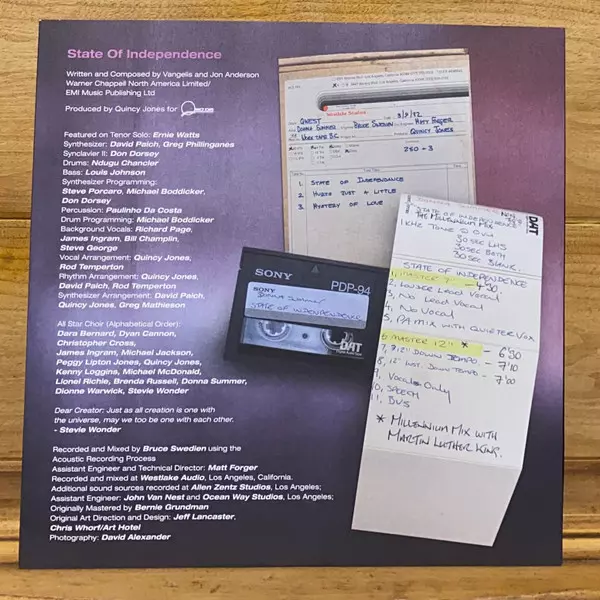 State Of Independence
Written and Composed by Vangelis and Jon Anderson
Warner Chappell North America Limited/
EMI Music Publishing Ltd
Produced by Quincy Jones for
Featured on Tenor Solo: Ernie Watts
Synthesizer: David Paich, Greg Phillinganes
Synclavier II: Don Dorsey
Drums: Ndugu Chancler
Bass: Louis Johnson
Synthesizer Programming:
Steve Porcaro, Michael Boddicker,
Don Dorsey
Percussion: Paulinho Da Costa
Drum Programming: Michael Boddicker
Background Vocals: Richard Page,
James Ingram, Bill Champlin,
Steve George
Vocal Arrangement: Quincy Jones,
Rod Temperton
Rhythm Arrangement: Quincy Jones,
David Paich, Rod Temperton
Synthesizer Arrangement: David Paich,
Quincy Jones, Greg Mathieson
All Star Choir (Alphabetical Order):
Dara Bernard, Dyan Cannon,
Christopher Cross,
James Ingram, Michael Jackson,
Peggy Lipton Jones, Quincy Jones,
Kenny Loggins, Michael McDonald,
Lionel Richie, Brenda Russell, Donna Summer,
Dionne Warwick, Stevie Wonder
Dear Creator: Just as all creation is one with
the universe, may we too be one with each other.
- Stevie Wonder
Recorded and Mixed by Bruce Swedien using the
Acoustic Recording Process
Assistant Engineer and Technical Director: Matt Forger
Recorded and mixed at Westlake Audio, Los Angeles, California.
Additional sound sources recorded at Allen Zentz Studios, Los Angeles;
Assistant Engineer: John Van Nest and Ocean Way Studios, Los Angeles;
Originally Mastered by Bernie Grundman
Original Art Direction and Design: Jeff Lancaster,
Chris Whorf/Art Hotel
Photography: David Alexander
Westlake Studios
QWEST
3/8/82
DONNA SUMMER
BRUCE SWEDIEN
MATT FORGER
WORK TAPE
QUINCY JONES
250 + 3
1. STATE OF INDEPENDANCE
2. HURTS JUST A LITTLE
3. MYSTERY OF LOVE
SONY
PDP-94
DONNA SUMMER
STATE OF INDEPENDENCE
DAT
DAT
STATE OF INDEPENDENCE
THE MILLENNIUM MIX
1 KHZ TONE @ 0VU
30 SEC LHS
30 SEC BOTH
STATE OF INDEPENDENCE
1, MASTER 7" - 4'30
2, LOUDER LEAD VOCAL
3, NO LEAD VOCAL
4, NO VOCAL
5, PA MIX WITH QUIETER VOX
6 MASTER 12" * - 6'30
7, 12" DOWN TEMPO - 7'10
8, 12" INST. DOWN TEMPO - 7'00
9, VOCALS ONLY
10, SPEECH
11, BUS
* MILLENNIUM MIX WITH
MARTIN LUTHER KING.